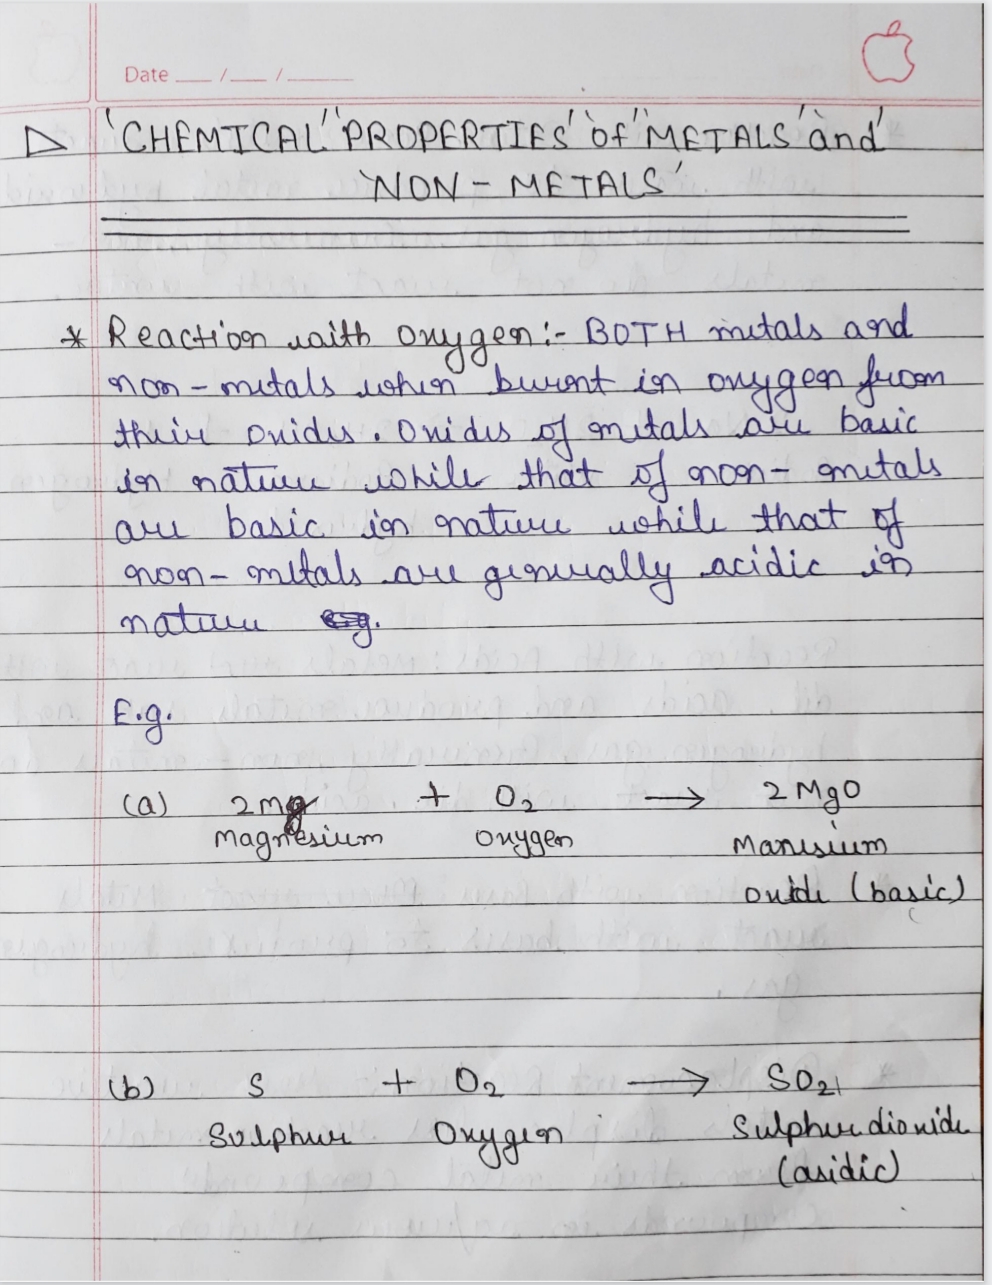 Date __/__/____
▷ 'CHEMICAL' 'PROPERTIES' 'of' 'METALS' 'and'
'NON-METALS'
* Reaction with oxygen:- BOTH metals and
non-metals when burnt in oxygen from
their oxides. Oxides of metals are basic
in nature while that of non-metals
are basic in nature while that of
non-metals are generally acidic in
nature
E.g.
(a) 2mg + O₂ → 2MgO
Magnesium oxygen Manesium
oxide (basic)
(b) S + O₂ → SO₂
Sulphur Oxygen Sulphur dioxide
(asidic)